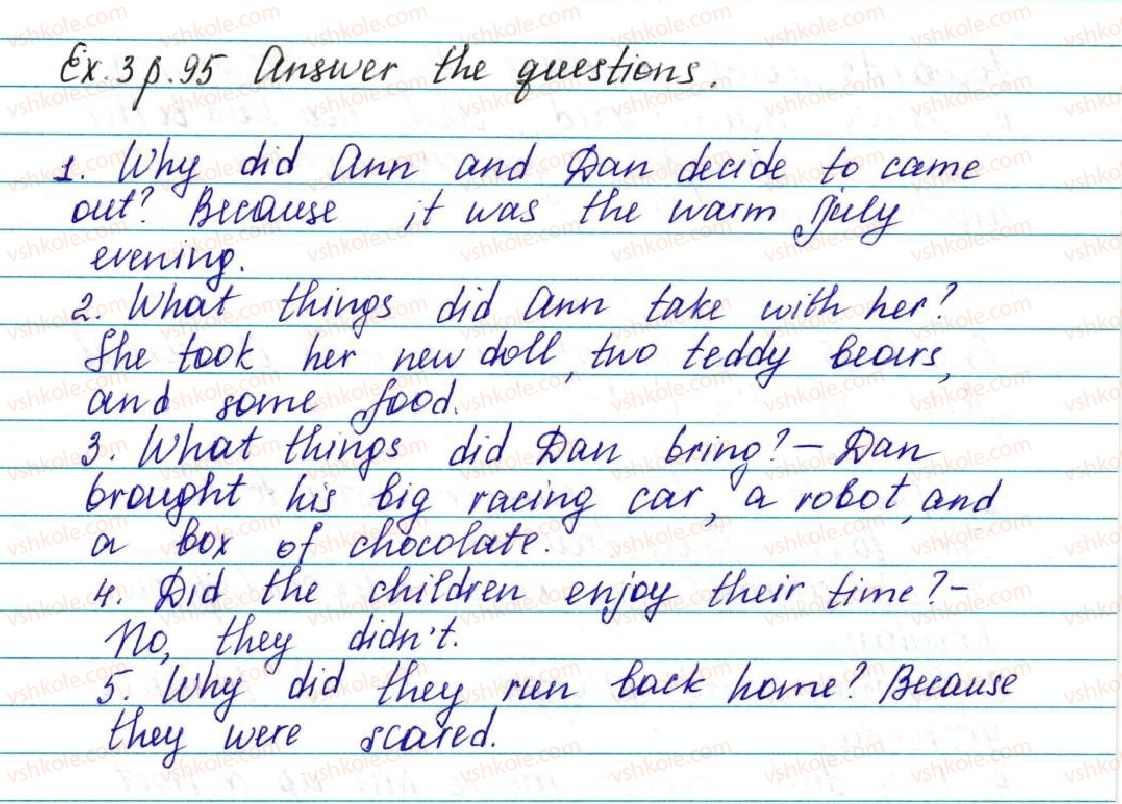 Ex. 3 p. 95 Answer the questions.
1. Why did Ann and Dan decide to came
out? Because it was the warm July
evening.
2. What things did Ann take with her?
She took her new doll, two teddy bears,
and some food.
3. What things did Dan bring? – Dan
brought his big racing car, a robot, and
a box of chocolate.
4. Did the children enjoy their time? –
No, they didn't.
5. Why did they run back home? Because
they were scared.